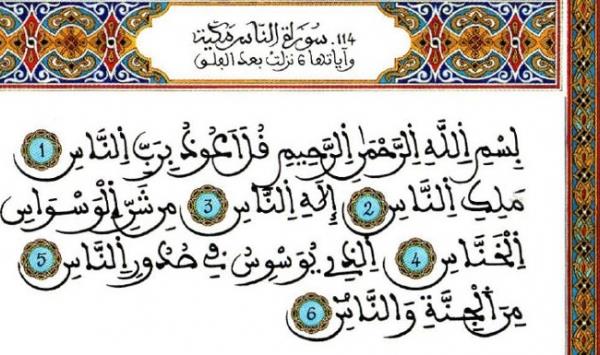 114. سورة الناس مكية
وآياتها 6 نزلت بعد الفلق
بِسْمِ اِللَّهِ اِلرَّحْمَٰنِ اِلرَّحِيمِ قُلَ اَعُوذُ بِرَبِّ اِلنَّاسِ 1
مَلِكِ اِلنَّاسِ 2 إِلَٰهِ اِلنَّاسِ 3 مِن شَرِّ اِلْوَسْوَاسِ
اِلْخَنَّاسِ 4 اِلذِے يُوَسْوِسُ فِے صُدُورِ اِلنَّاسِ 5
مِنَ اَلْجِنَّةِ وَالنَّاسِ 6